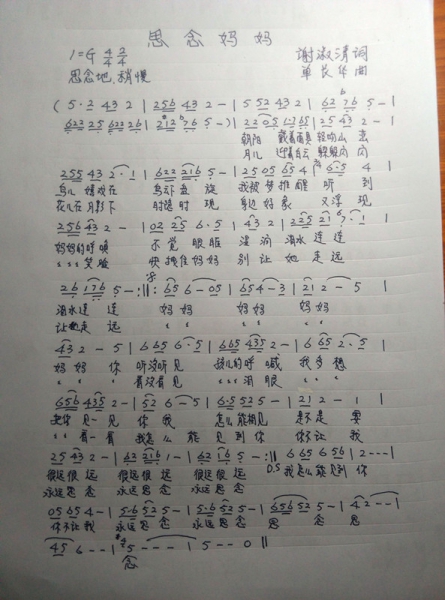 思念妈妈
1=G 4/4 2/4
谢淑清词
思念地、稍慢
单良华曲
(5·2 43 2 | 256 43 2 - | 5 52 43 2 | 62 76 5 - |
622 25 622 26 | 212 76 5 -) | 22 05 6765 | 25 43 2 - |
朝阳 戴着面具 轻吻山恋
月儿 迎着白云 躲躲闪闪
255 43 2·1 | 622 216 5 - | 25 05 65 4 | 6·5 4 |
鸟儿 嬉戏在 鸟卟盘旋 我被梦推醒 听到
花儿在月影下 时隐时现 身边好象 又浮现
256 43 2 - | 02 25 6·5 | 43 2 | 225 21 7·1 |
妈妈的呼唤 不觉眼眶 滚淌泪水涟涟
〃〃〃 笑脸 快挽住妈妈 别让她走远
26 176 5 - :||: 65 6 - 05 | 65 4 - 3 | 21 2 - 5 |
泪水涟涟 妈妈 妈妈 妈妈
让她走远 〃 〃 〃 〃 〃 〃
43 2 - 5 | 665 6·5 | 665 435 2 - | 665 2·5 |
妈妈 你 听没听见 孩儿的呼喊 我多想
〃 〃 〃 看没看见 〃〃〃泪眼 〃 〃 〃
656 435 2 - | 52 6 - 5 | 6·5 525 - | 21 2 - 1 |
把你见一见 你 我 怎么能相见 是不是要
〃〃看一看 我怎么能见到你 你不让我
25 43 2 - | 62 216 1 - | 62 16 5 - :|| 665 656 12 - - - |
很远很远 很远很远 很远很远 D.S 我怎么能见到你
永远思念 永远思念 永远思念
05 65 4 - | 5·6 52 5 - | 5·6 52 5 - | 656 52 5 - | 42 - - |
你不让我 永远思念 永远思念 思 念 思
45 6 - - | 5 - - - | 5 - - 0 ||
念